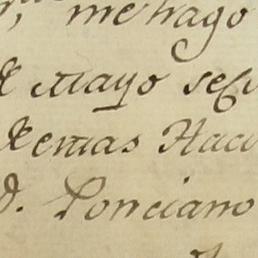 me hago
de Mayo se
demas Haci
D. Ponciano